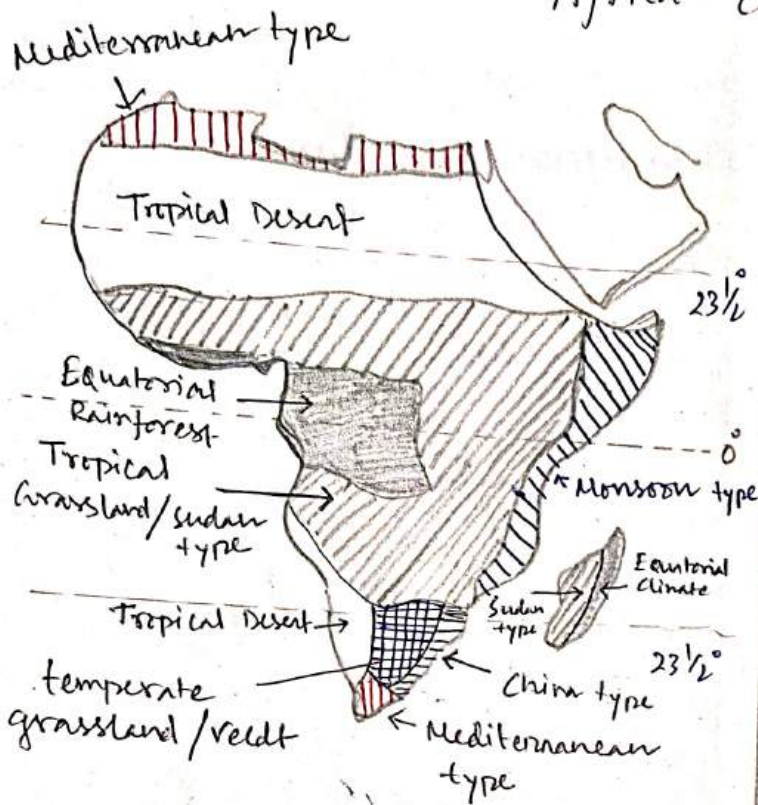 Mediterranean type
Tropical Desert
23 1/2°
Equatorial
Rainforest
0°
Tropical
Grassland/Sudan
type
Monsoon type
Equatorial
Climate
Sudan
type
Tropical Desert
23 1/2°
China type
temperate
grassland/veldt
Mediterranean
type